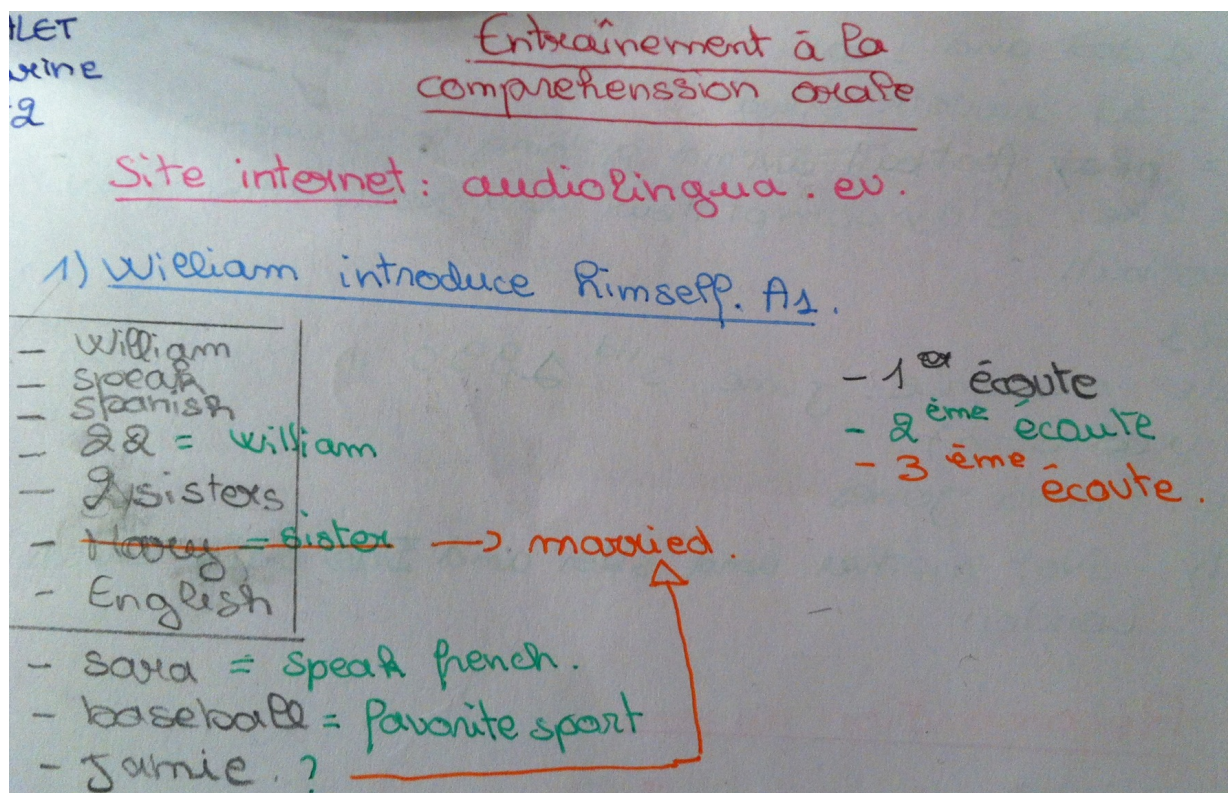 ILET
rine
2
Entraînement à la
comprehenssion orale
Site internet : audiolingua . eu.
1) William introduce himself. A1.
- William
- speak
- spanish
- 22 = william
- 2 sisters
- Mary = sister → married.
- English
- sara = speak french.
- baseball = favorite sport
- Jamie . ?
- 1er écoute
- 2ème écoute
- 3ème écoute.